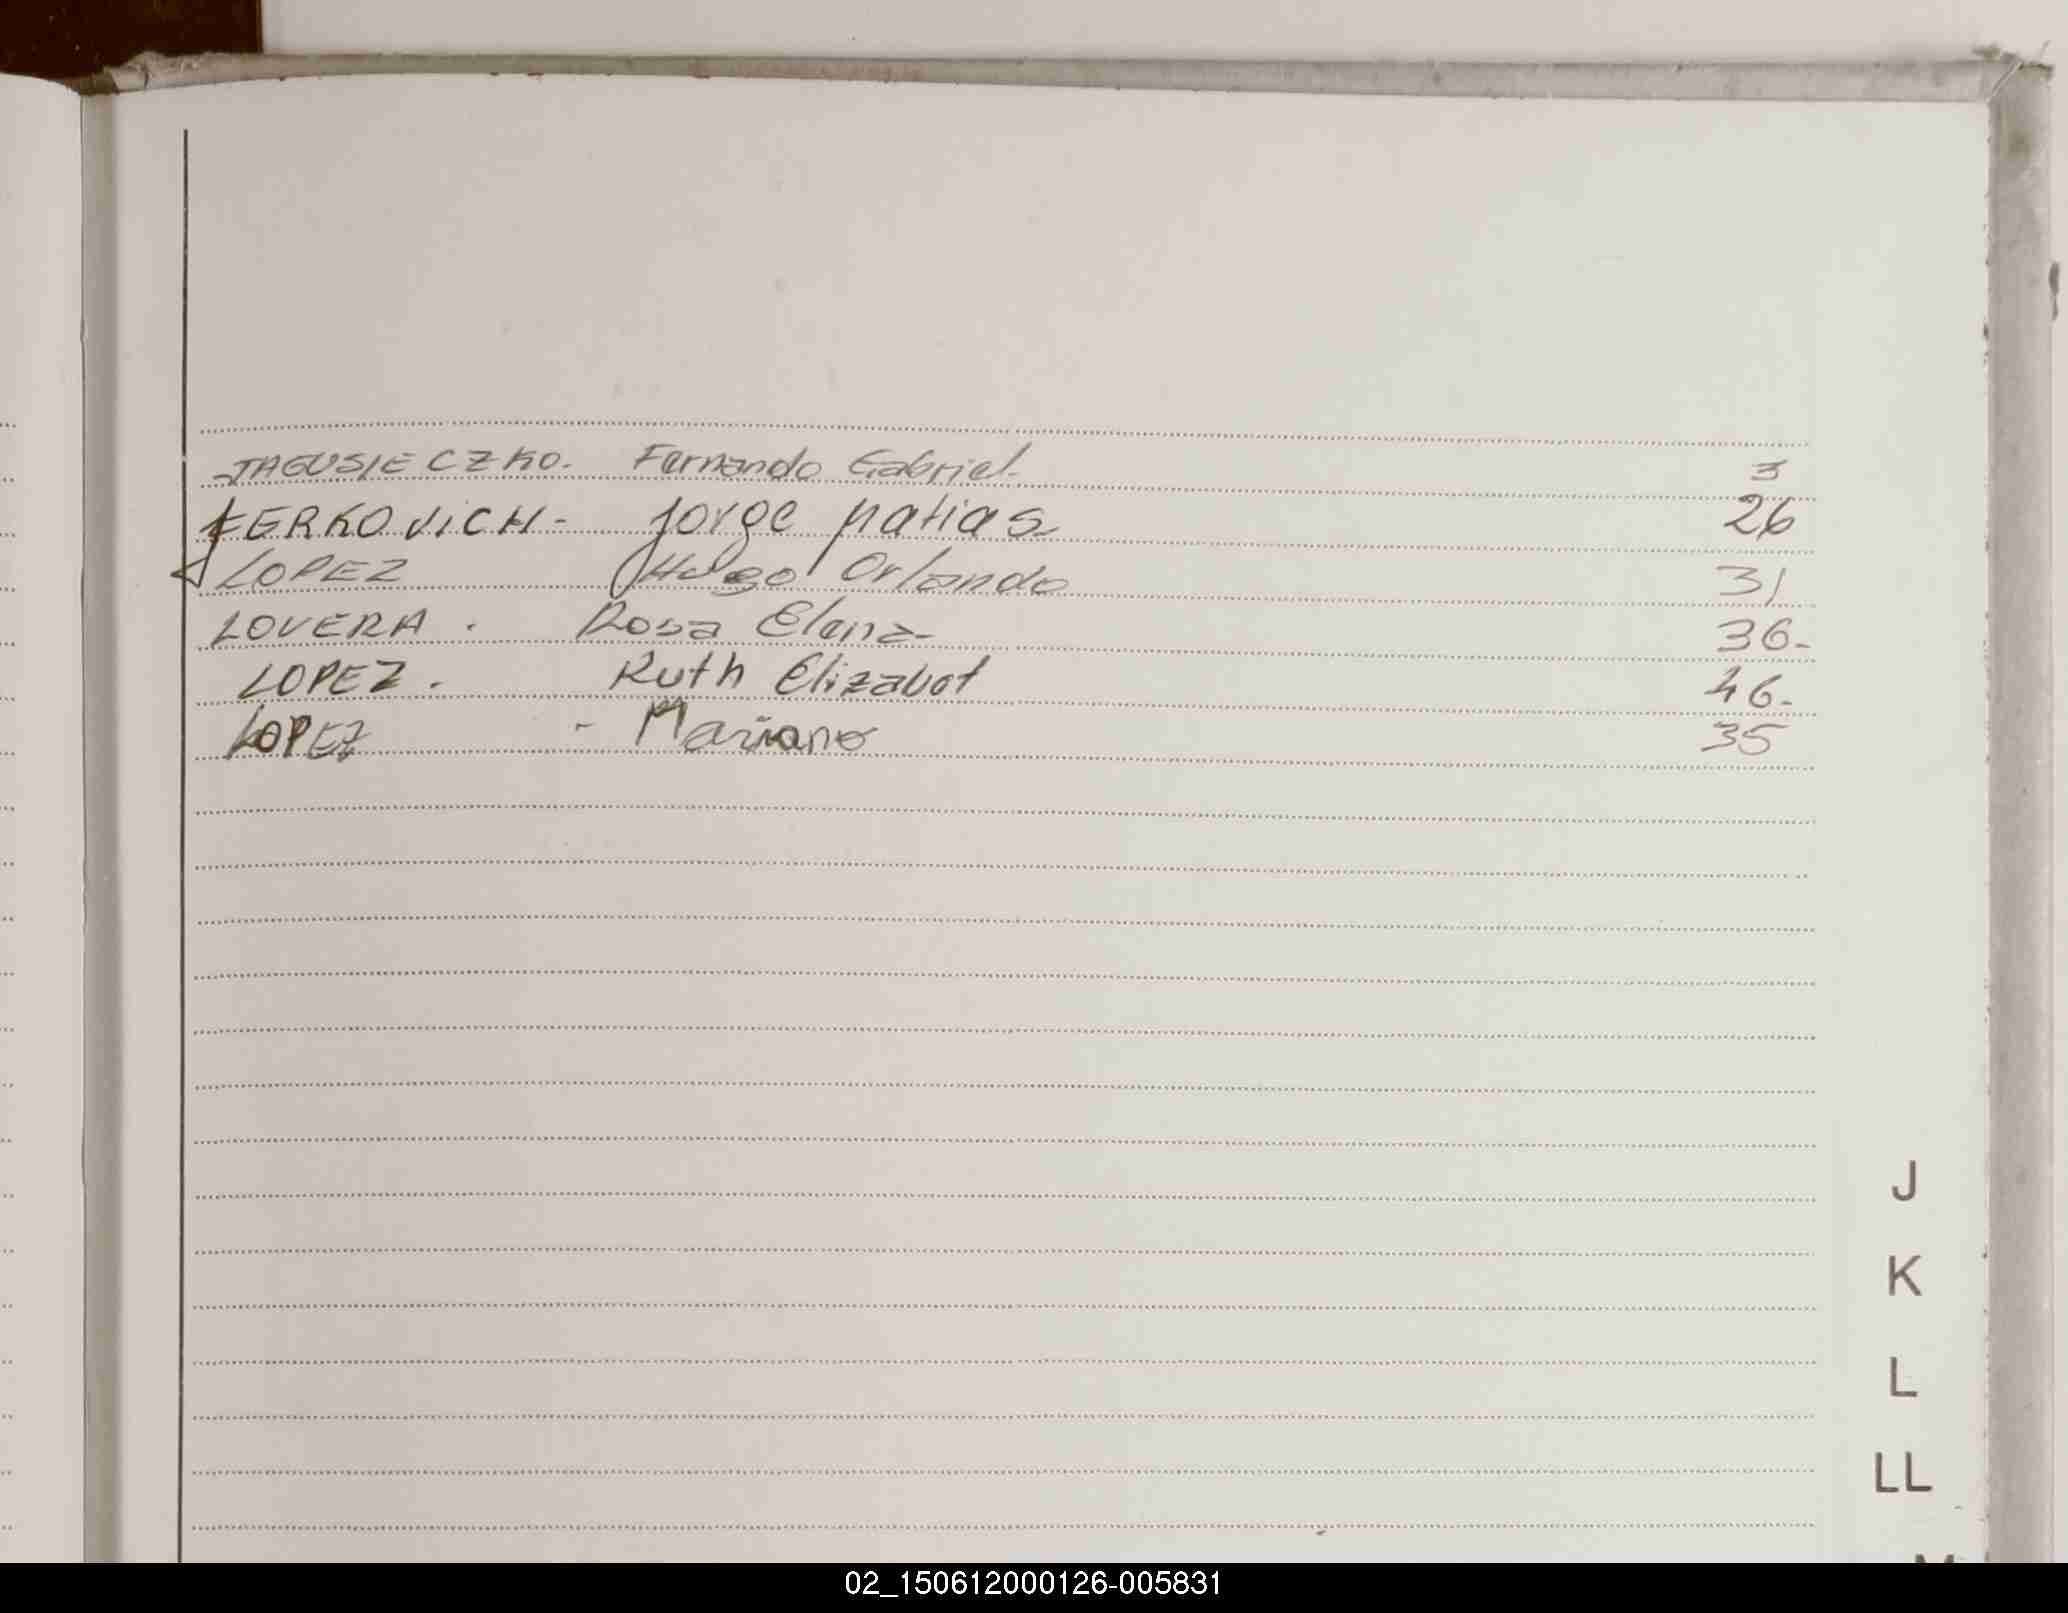 JAGUSIECZKO. Fernando Gabriel. 3
JERKOVICH - Jorge Matias 26
LOPEZ Hugo Orlando 31
LOVERA . Rosa Elena - 36-
LOPEZ . Ruth Elizabet 46-
LOPEZ - Mariano 35
J
K
L
LL
M
02_150612000126-005831